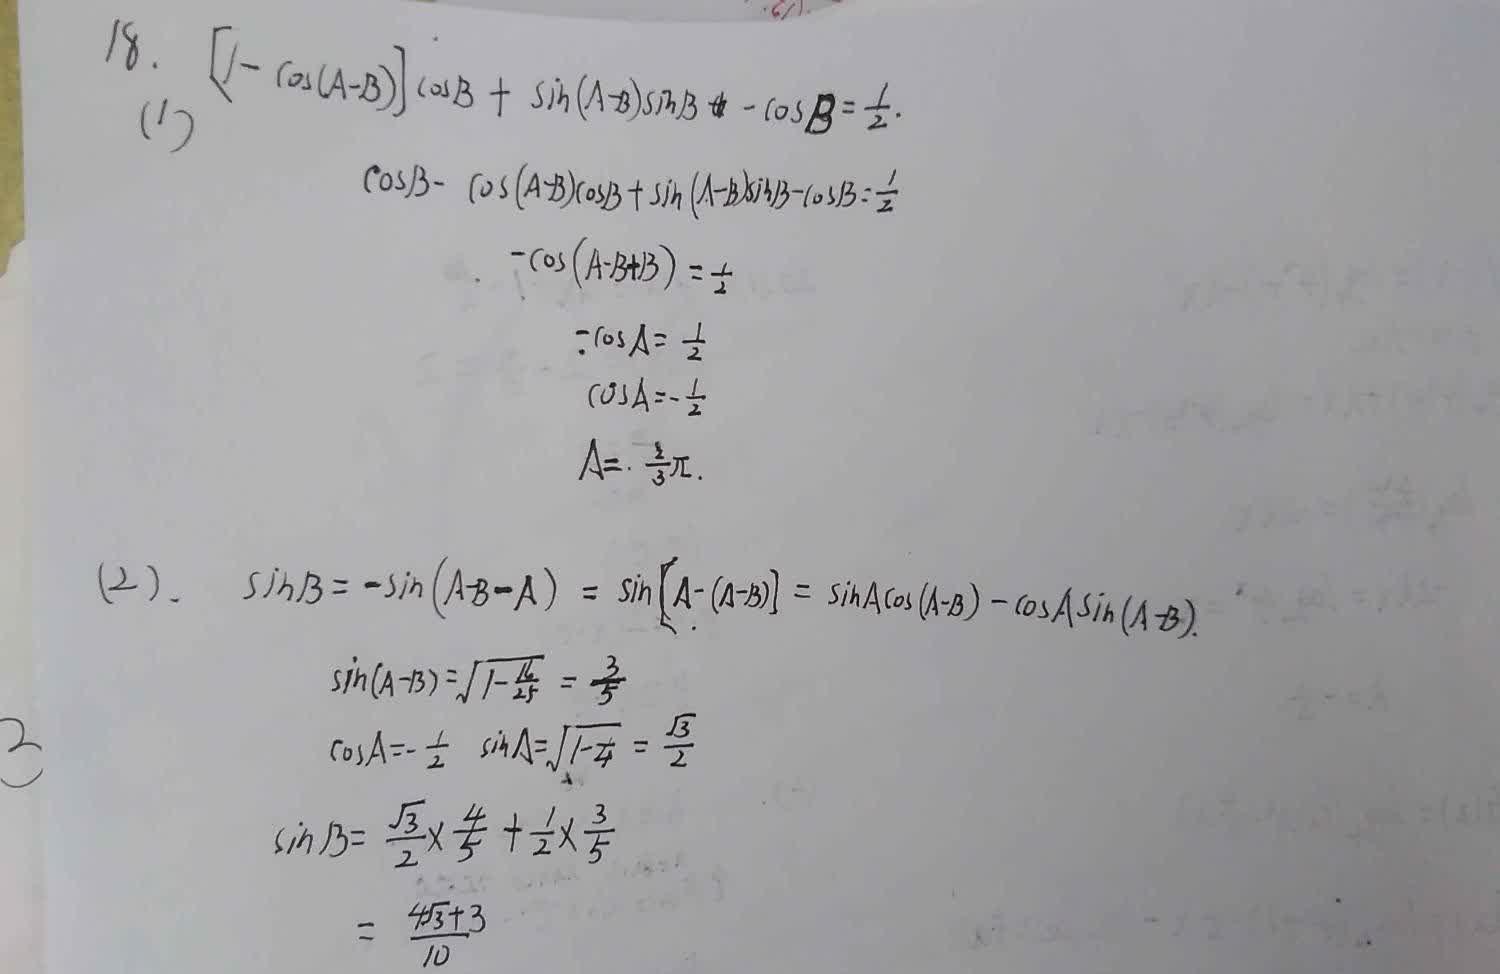 18. [1-cos(A-B)]cosB + sin(A-B)sinB - cosB = 1/2.
(1)
cosB - cos(A-B)cosB + sin(A-B)sinB - cosB = 1/2
-cos(A-B+B) = 1/2
-cosA = 1/2
cosA = -1/2
A = 2/3 π.
(2). sinB = -sin(A-B-A) = sin[A-(A-B)] = sinAcos(A-B) - cosAsin(A-B).
sin(A-B) = √(1-16/25) = 3/5
cosA = -1/2 sinA = √(1-1/4) = √3/2
sinB = √3/2 × 4/5 + 1/2 × 3/5
= (4√3+3)/10